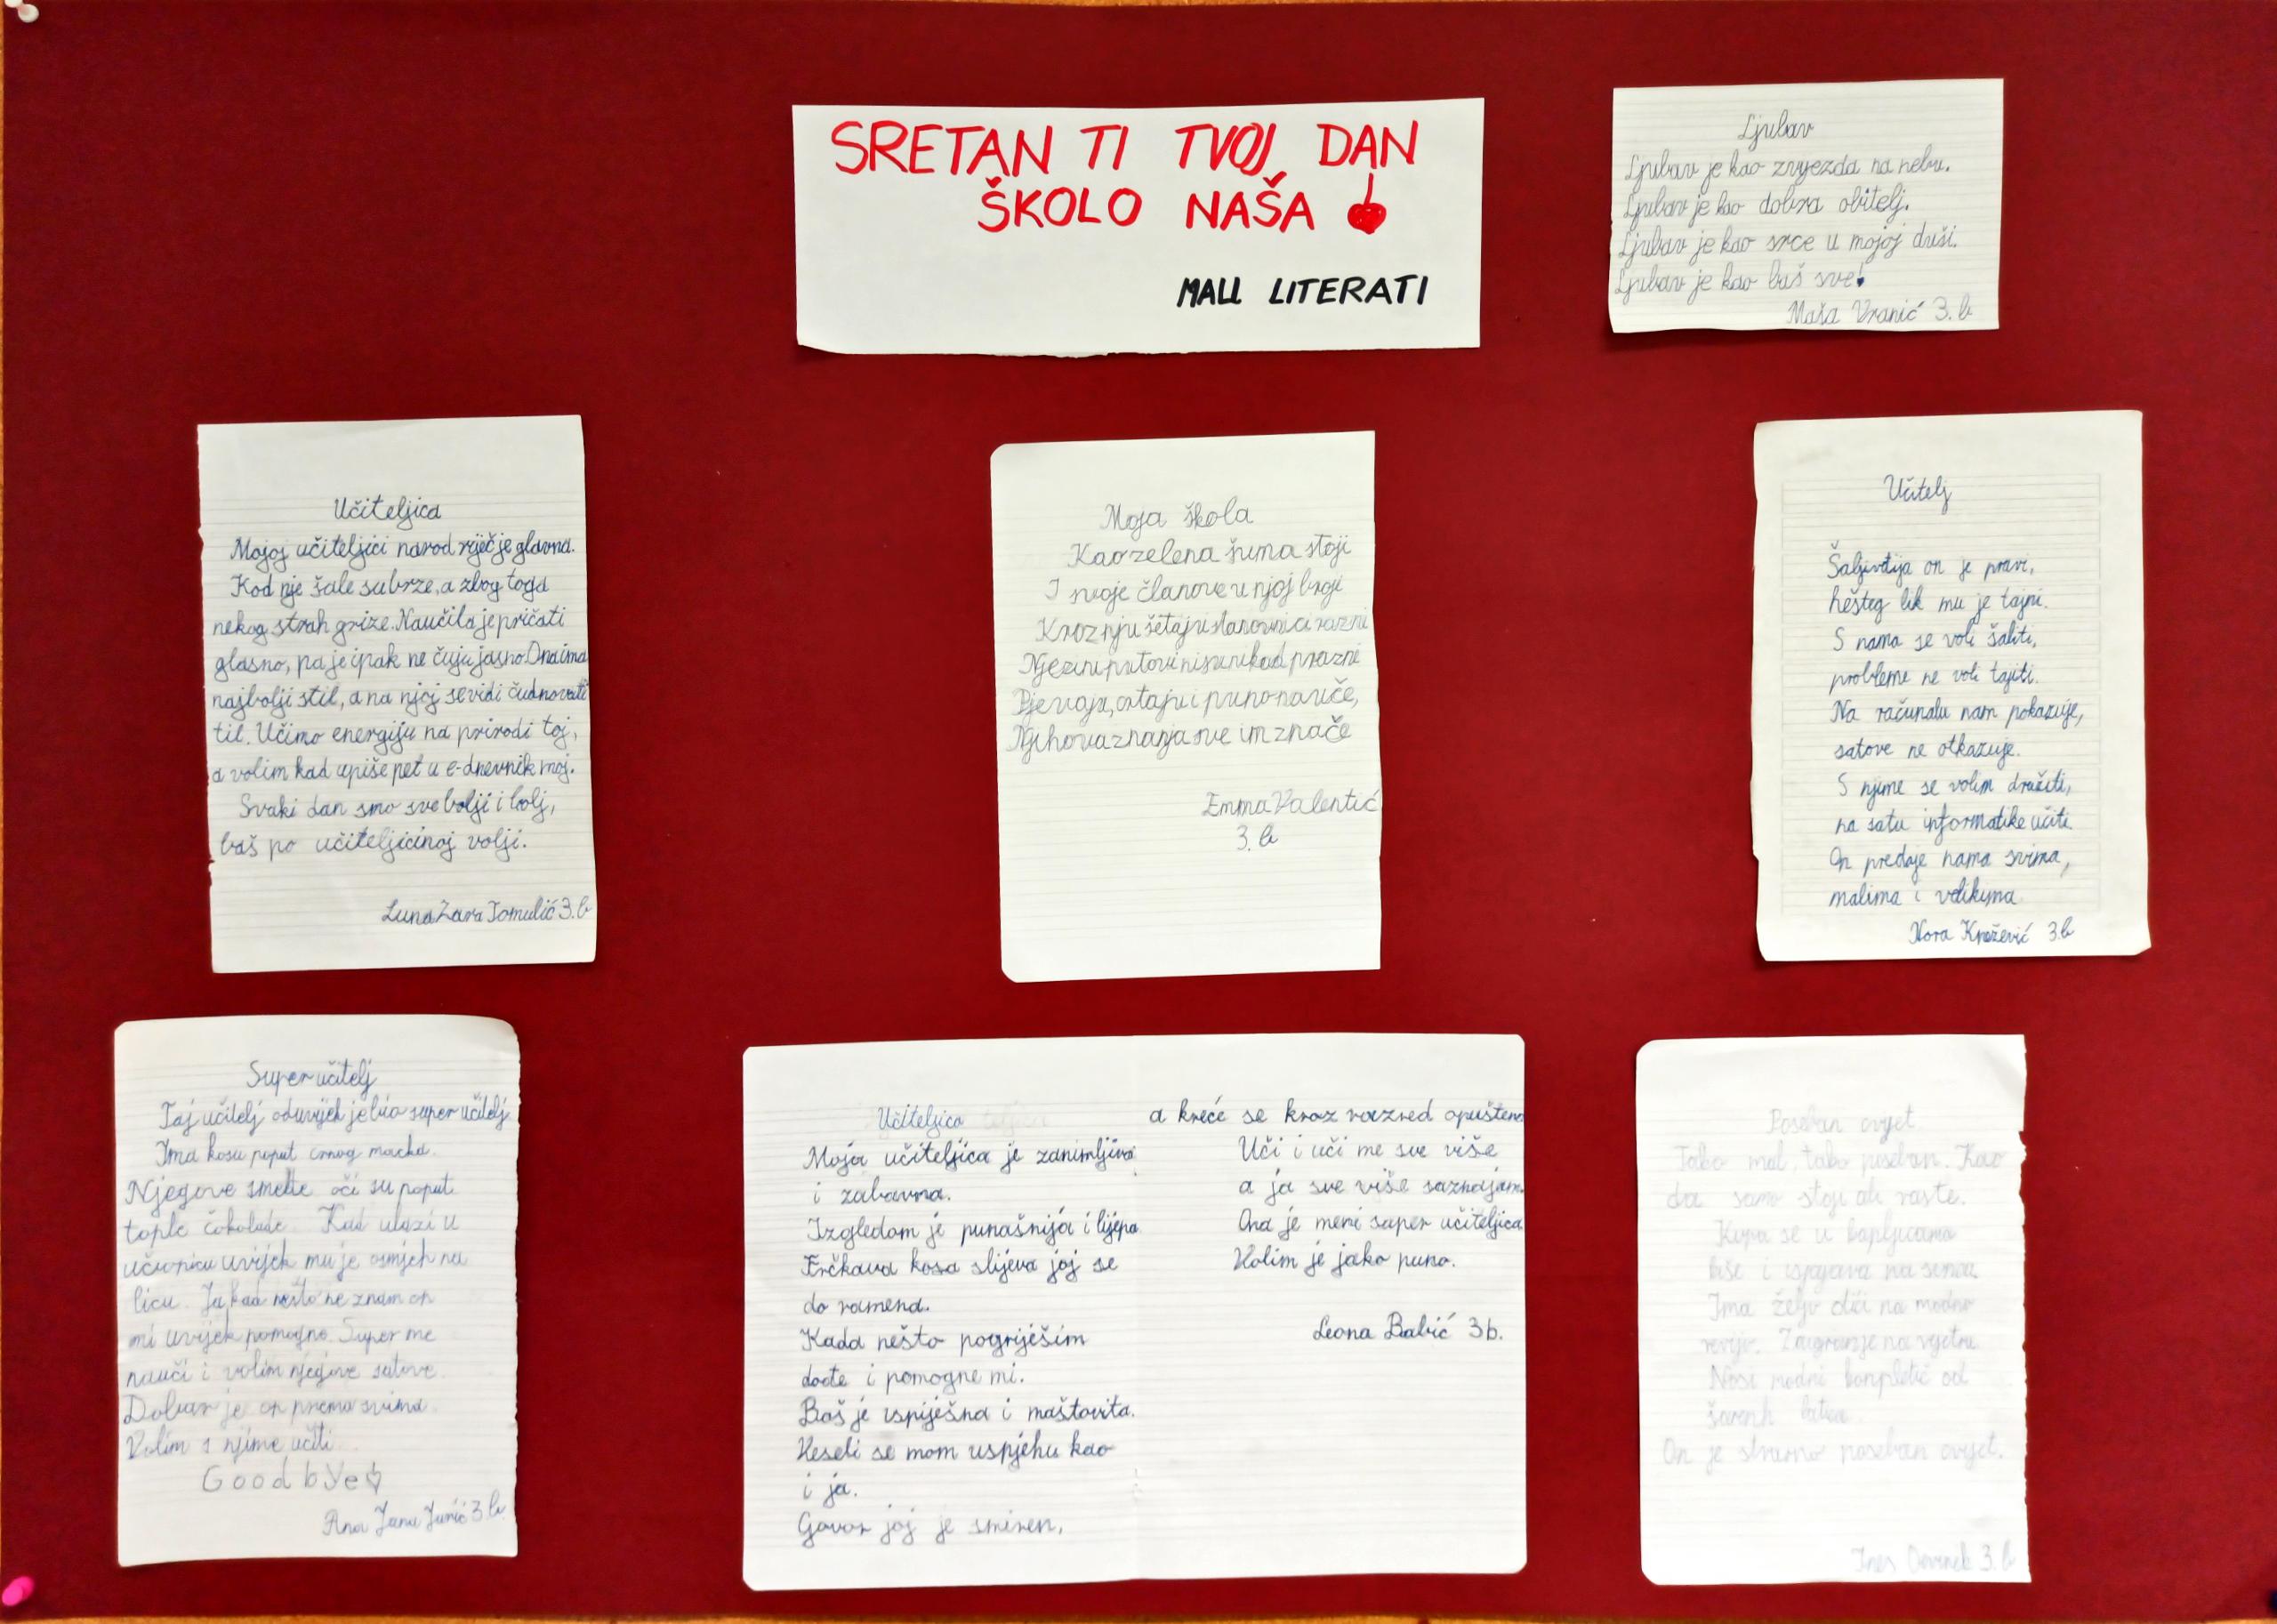 SRETAN TI TVOJ DAN
ŠKOLO NAŠA
MALI LITERATI
Ljubav
Ljubav je kao zvijezda na nebu.
Ljubav je kao dobra obitelj.
Ljubav je kao srce u mojoj duši.
Ljubav je kao baš sve!
Maša Vranić 3. b
Učiteljica
Mojoj učiteljici narod riječ je glavna.
Kod nje šale su brze, a zbog toga
nekog strah grize. Naučila je pričati
glasno, pa je ipak ne čuju jasno. Ona ima
najbolji stil, a na njoj se vidi čudnovati
til. Učimo energiju na prirodi toj,
a volim kad upiše pet u e-dnevnik moj.
Svaki dan smo sve bolji i bolj,
baš po učiteljicinoj volji.
Luna Zara Tomulić 3. b
Moja škola
Kao zelena šuma stoji
I svoje članove u njoj broji
Kroz nju šetaju stanovnici razni
Njezini putovi nisu nikad prazni
Pjevaju, crtaju i puno nauče,
Njihova znanja sve im znače
Emma Valentić
3. b
Učitelj
Šaljivdija on je pravi,
hešteg lik mu je tajni.
S nama se voli šaliti,
probleme ne voli tajiti.
Na računalu nam pokazuje,
satove ne otkazuje.
S njime se volim družiti,
na satu informatike učiti.
On predaje nama svima,
malima i velikima.
Nora Knežević 3. b
Super učitelj
Taj učitelj oduvijek je bio super učitelj.
Ima kosu poput crnog macka.
Njegove smeđe oči su poput
tople čokolade. Kad ulazi u
učionicu uvijek mu je osmjeh na
licu. Ja kad nešto ne znam on
mi uvijek pomogne. Super me
nauči i volim njegove satove.
Dobar je on prema svima.
Volim s njime učiti.
Goodbye
Ana Jana Jurić 3. b
Učiteljica
Moja učiteljica je zanimljiva
i zabavna.
Izgledom je punašnija i lijepa.
Frčkava kosa slijeva joj se
do ramena.
Kada nešto pogriješim
dođe i pomogne mi.
Baš je uspiješna i maštovita.
Veseli se mom uspjehu kao
i ja.
Govor joj je smiren,
a kreće se kroz razred opušteno
Uči i uči me sve više
a ja sve više saznajam.
Ona je meni super učiteljica.
Volim je jako puno.
Leona Babić 3b.
Poseban cvijet
Tako mal, tako poseban. Kao
da samo stoji ali raste.
Kupa se u kapljicama
kiše i
Ima želju otići na modnu
reviju. na vjetru.
Nosi modni kompletić od
šarenih latica.
On je stvarno poseban cvijet.
Ines 3. b